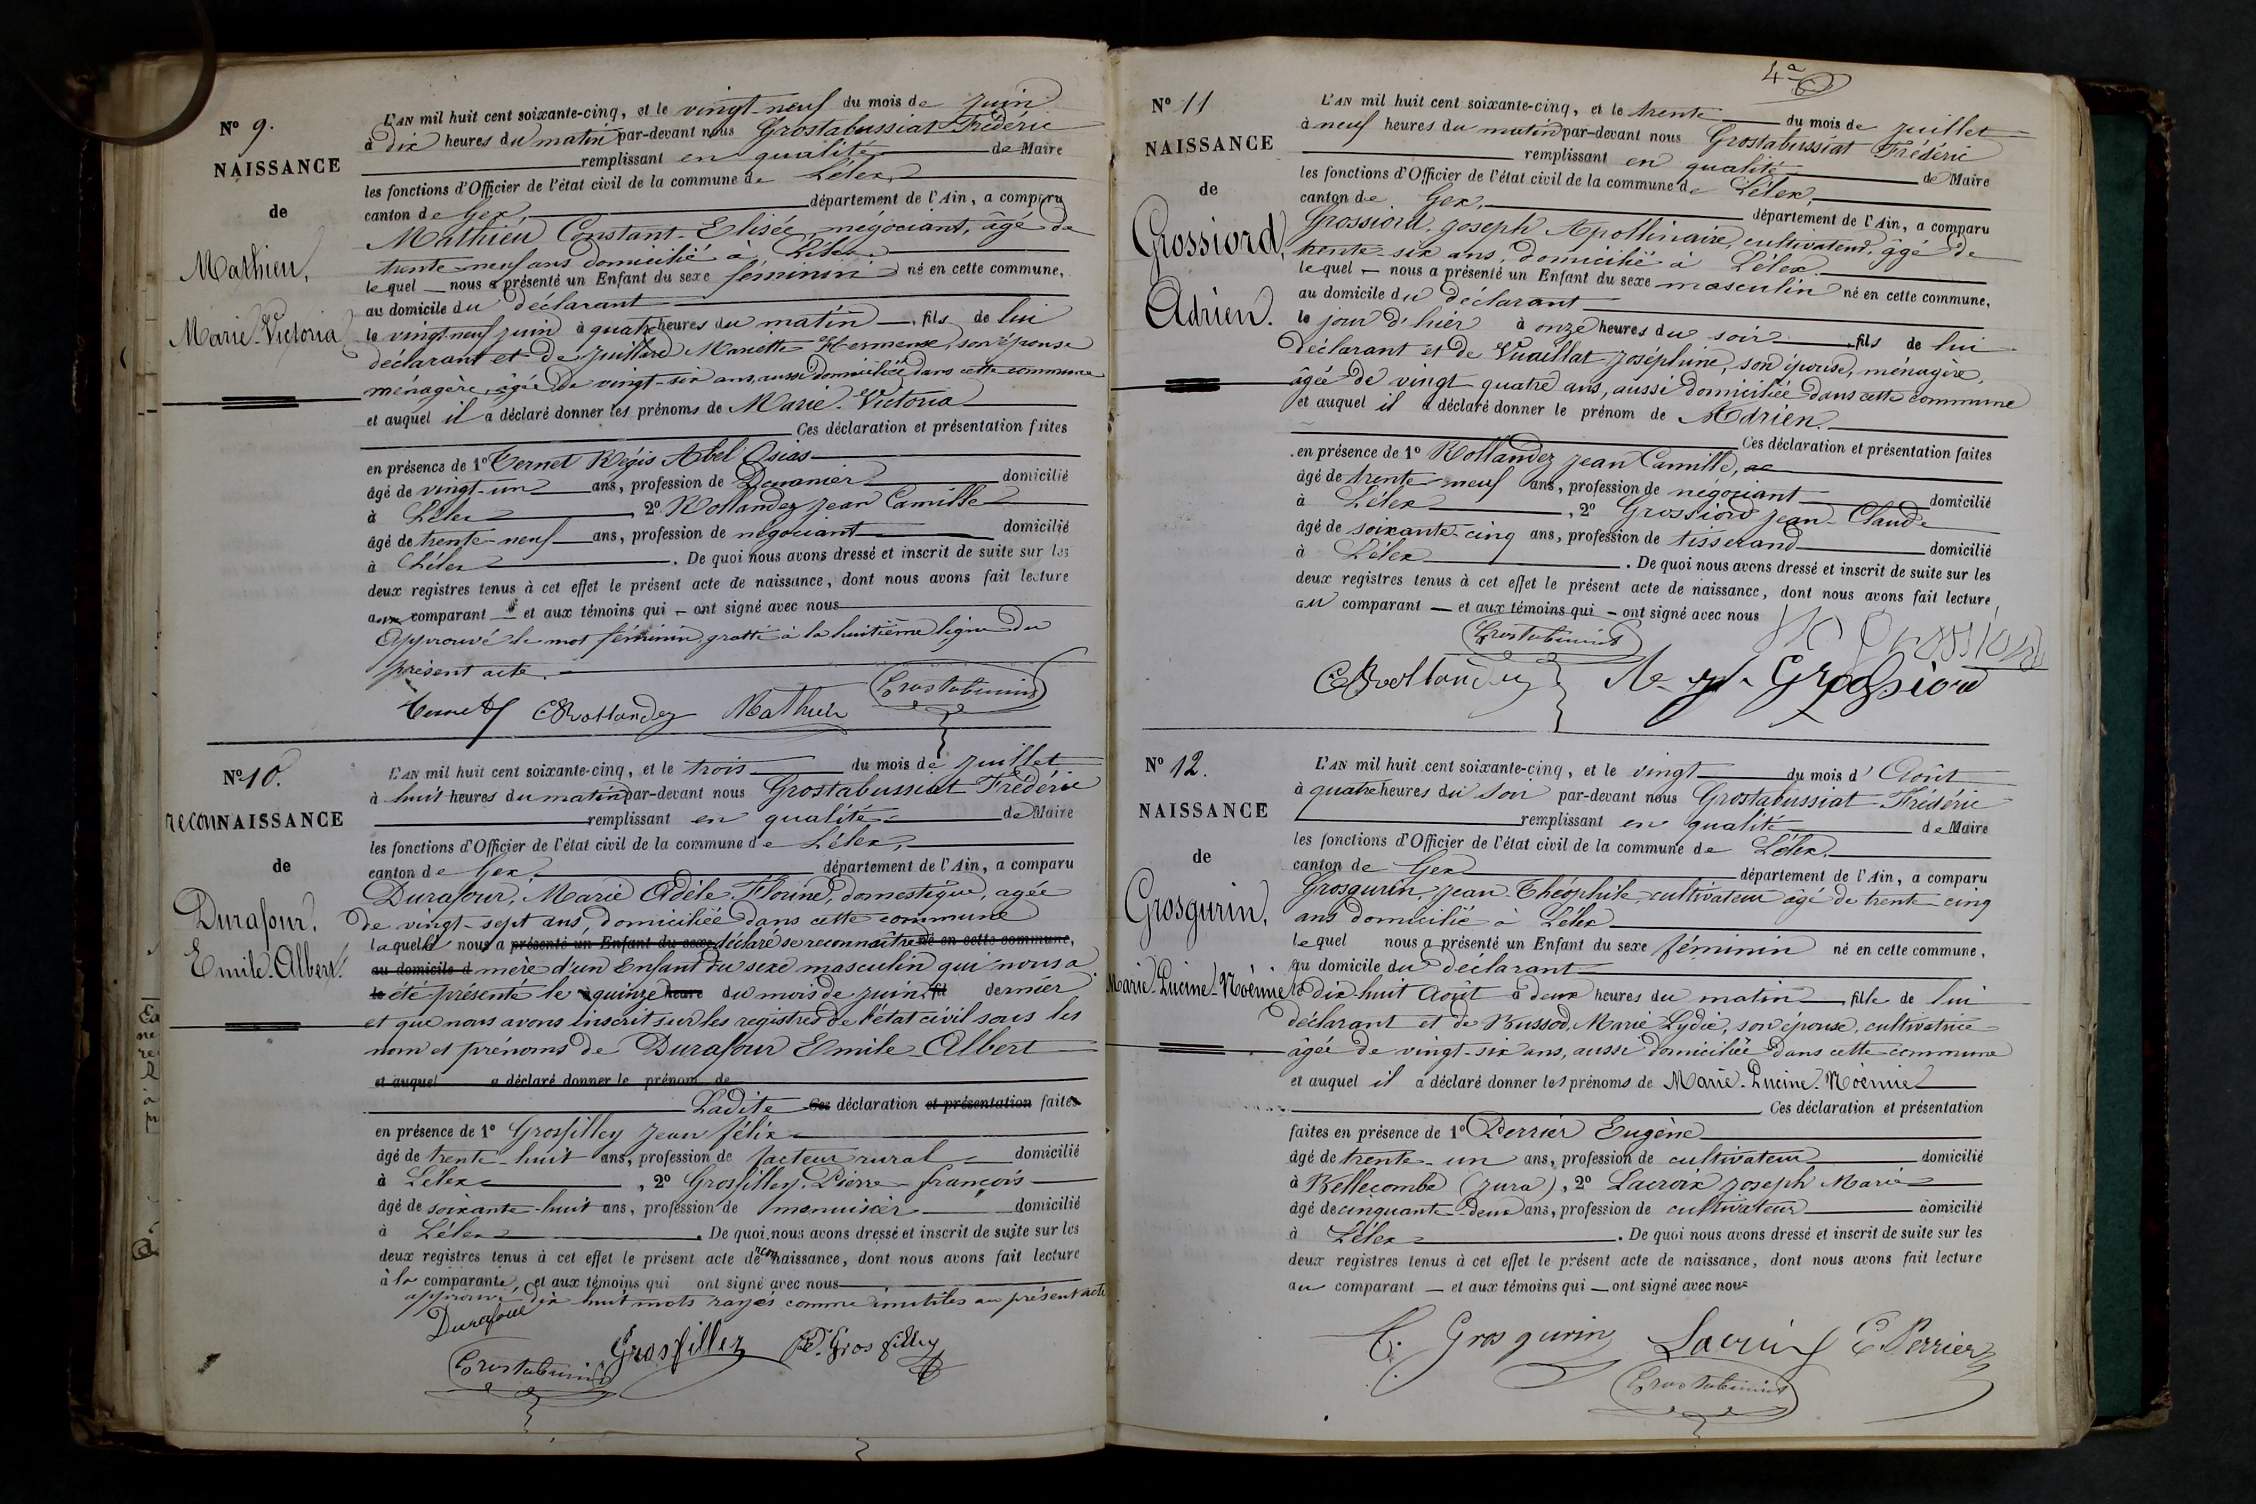 N° 9.
NAISSANCE
de
Mathieu,
Marie-Victoria
L'AN mil huit cent soixante-cinq, et le vingt-neuf du mois de juin
à dix heures du matin par-devant nous Grostabussiat Frédéric
remplissant en qualité de Maire
les fonctions d'Officier de l'état civil de la commune de Lélex,
canton de Gex, département de l'Ain, a comparu
Mathieu Constant-Elisée, négociant, âgé de
trente-neuf ans domicilié à Lélex.
lequel nous a présenté un Enfant du sexe féminin né en cette commune,
au domicile du déclarant
le vingt-neuf juin à quatre heures du matin, fils de lui
déclarant et de Juillard Mariette Hermense, son épouse
ménagère, âgée de vingt-six ans, aussi domiciliée dans cette commune
et auquel il a déclaré donner les prénoms de Marie-Victoria
Ces déclaration et présentation faites
en présence de 1° Ternet Régis Abel Osias
âgé de vingt-un ans, profession de Douanier domicilié
à Lélex, 2° Rollandez Jean Camille
âgé de trente-neuf ans, profession de négociant domicilié
à Lélex. De quoi nous avons dressé et inscrit de suite sur les
deux registres tenus à cet effet le présent acte de naissance, dont nous avons fait lecture
aux comparant et aux témoins qui ont signé avec nous
Approuvé le mot féminin, gratté à la huitième ligne du
présent acte.
Ternet CRollandez Mathieu Grostabussiat
N° 10.
reconNAISSANCE
de
Durafour,
Emile-Albert.
L'AN mil huit cent soixante-cinq, et le trois du mois de juillet
à huit heures du matin par-devant nous Grostabussiat Frédéric
remplissant en qualité de Maire
les fonctions d'Officier de l'état civil de la commune de Lélex,
canton de Gex, département de l'Ain, a comparu
Durafour, Marie Adèle Florine, domestique, agée
de vingt-sept ans, domiciliée dans cette commune
laquelle nous a présenté un Enfant du sexe déclaré se reconnaître né en cette commune,
au domicile d mère d'un Enfant du sexe masculin qui nous a
le été présenté le quinze heure du mois de juin fil dernier
et que nous avons inscrit sur les registres de l'état civil sous les
nom et prénoms de Durafour Emile-Albert
et auquel a déclaré donner le prénom de
Ladite Ces déclaration et présentation faites
en présence de 1° Grosfilley Jean félix
âgé de trente-huit ans, profession de facteur rural domicilié
à Lélex, 2° Grosfilley Pierre-françois
âgé de soixante-huit ans, profession de menuisier domicilié
à Lélex. De quoi nous avons dressé et inscrit de suite sur les
deux registres tenus à cet effet le présent acte de reconnaissance, dont nous avons fait lecture
à la comparante, et aux témoins qui ont signé avec nous
approuvé, dix-huit mots rayés comme inutiles au présent acte
Durafour
Grosfilley Grosfilley
Grostabussiat
4e
N° 11
NAISSANCE
de
Grossiord,
Adrien.
L'AN mil huit cent soixante-cinq, et le trente du mois de juillet
à neuf heures du matin par-devant nous Grostabussiat Frédéric
remplissant en qualité de Maire
les fonctions d'Officier de l'état civil de la commune de Lélex,
canton de Gex, département de l'Ain, a comparu
Grossiord, Joseph Apollinaire, cultivateur, âgé de
trente-six ans, domicilié à Lélex.
lequel nous a présenté un Enfant du sexe masculin né en cette commune,
au domicile du déclarant
le jour d'hier à onze heures du soir, fils de lui
déclarant et de Vuaillat Joséphine, son épouse, ménagère,
âgée de vingt quatre ans, aussi domiciliée dans cette commune
et auquel il a déclaré donner le prénom de Adrien.
Ces déclaration et présentation faites
en présence de 1° Rollandez Jean Camille,
âgé de trente neuf ans, profession de négociant domicilié
à Lélex, 2° Grossiord Jean-Claude
âgé de soixante-cinq ans, profession de tisserand domicilié
à Lélex. De quoi nous avons dressé et inscrit de suite sur les
deux registres tenus à cet effet le présent acte de naissance, dont nous avons fait lecture
au comparant et aux témoins qui ont signé avec nous
Grostabussiat Grossiord
CRollandez Grossiord
N° 12.
NAISSANCE
de
Grosgurin,
Marie-Lucine-Noémie
L'AN mil huit cent soixante-cinq, et le vingt du mois d'Août
à quatre heures du soir par-devant nous Grostabussiat Frédéric
remplissant en qualité de Maire
les fonctions d'Officier de l'état civil de la commune de Lélex.
canton de Gex département de l'Ain, a comparu
Grosgurin, Jean-Théophile cultivateur âgé de trente-cinq
ans domicilié à Lélex
lequel nous a présenté un Enfant du sexe féminin né en cette commune,
au domicile du déclarant
le dix-huit Août à deux heures du matin, fille de lui
déclarant et de Bussod, Marie Lydie, son épouse, cultivatrice
âgée de vingt-six ans, aussi domiciliée dans cette commune
et auquel il a déclaré donner les prénoms de Marie-Lucine-Noémie
Ces déclaration et présentation
faites en présence de 1° Perrier Eugène
âgé de trente-un ans, profession de cultivateur domicilié
à Bellecombe (Jura), 2° Lacroix Joseph Marie
âgé de cinquante-deux ans, profession de cultivateur domicilié
à Lélex. De quoi nous avons dressé et inscrit de suite sur les
deux registres tenus à cet effet le présent acte de naissance, dont nous avons fait lecture
au comparant et aux témoins qui ont signé avec nous
Grosgurin Lacroix E. Perrier
Grostabussiat